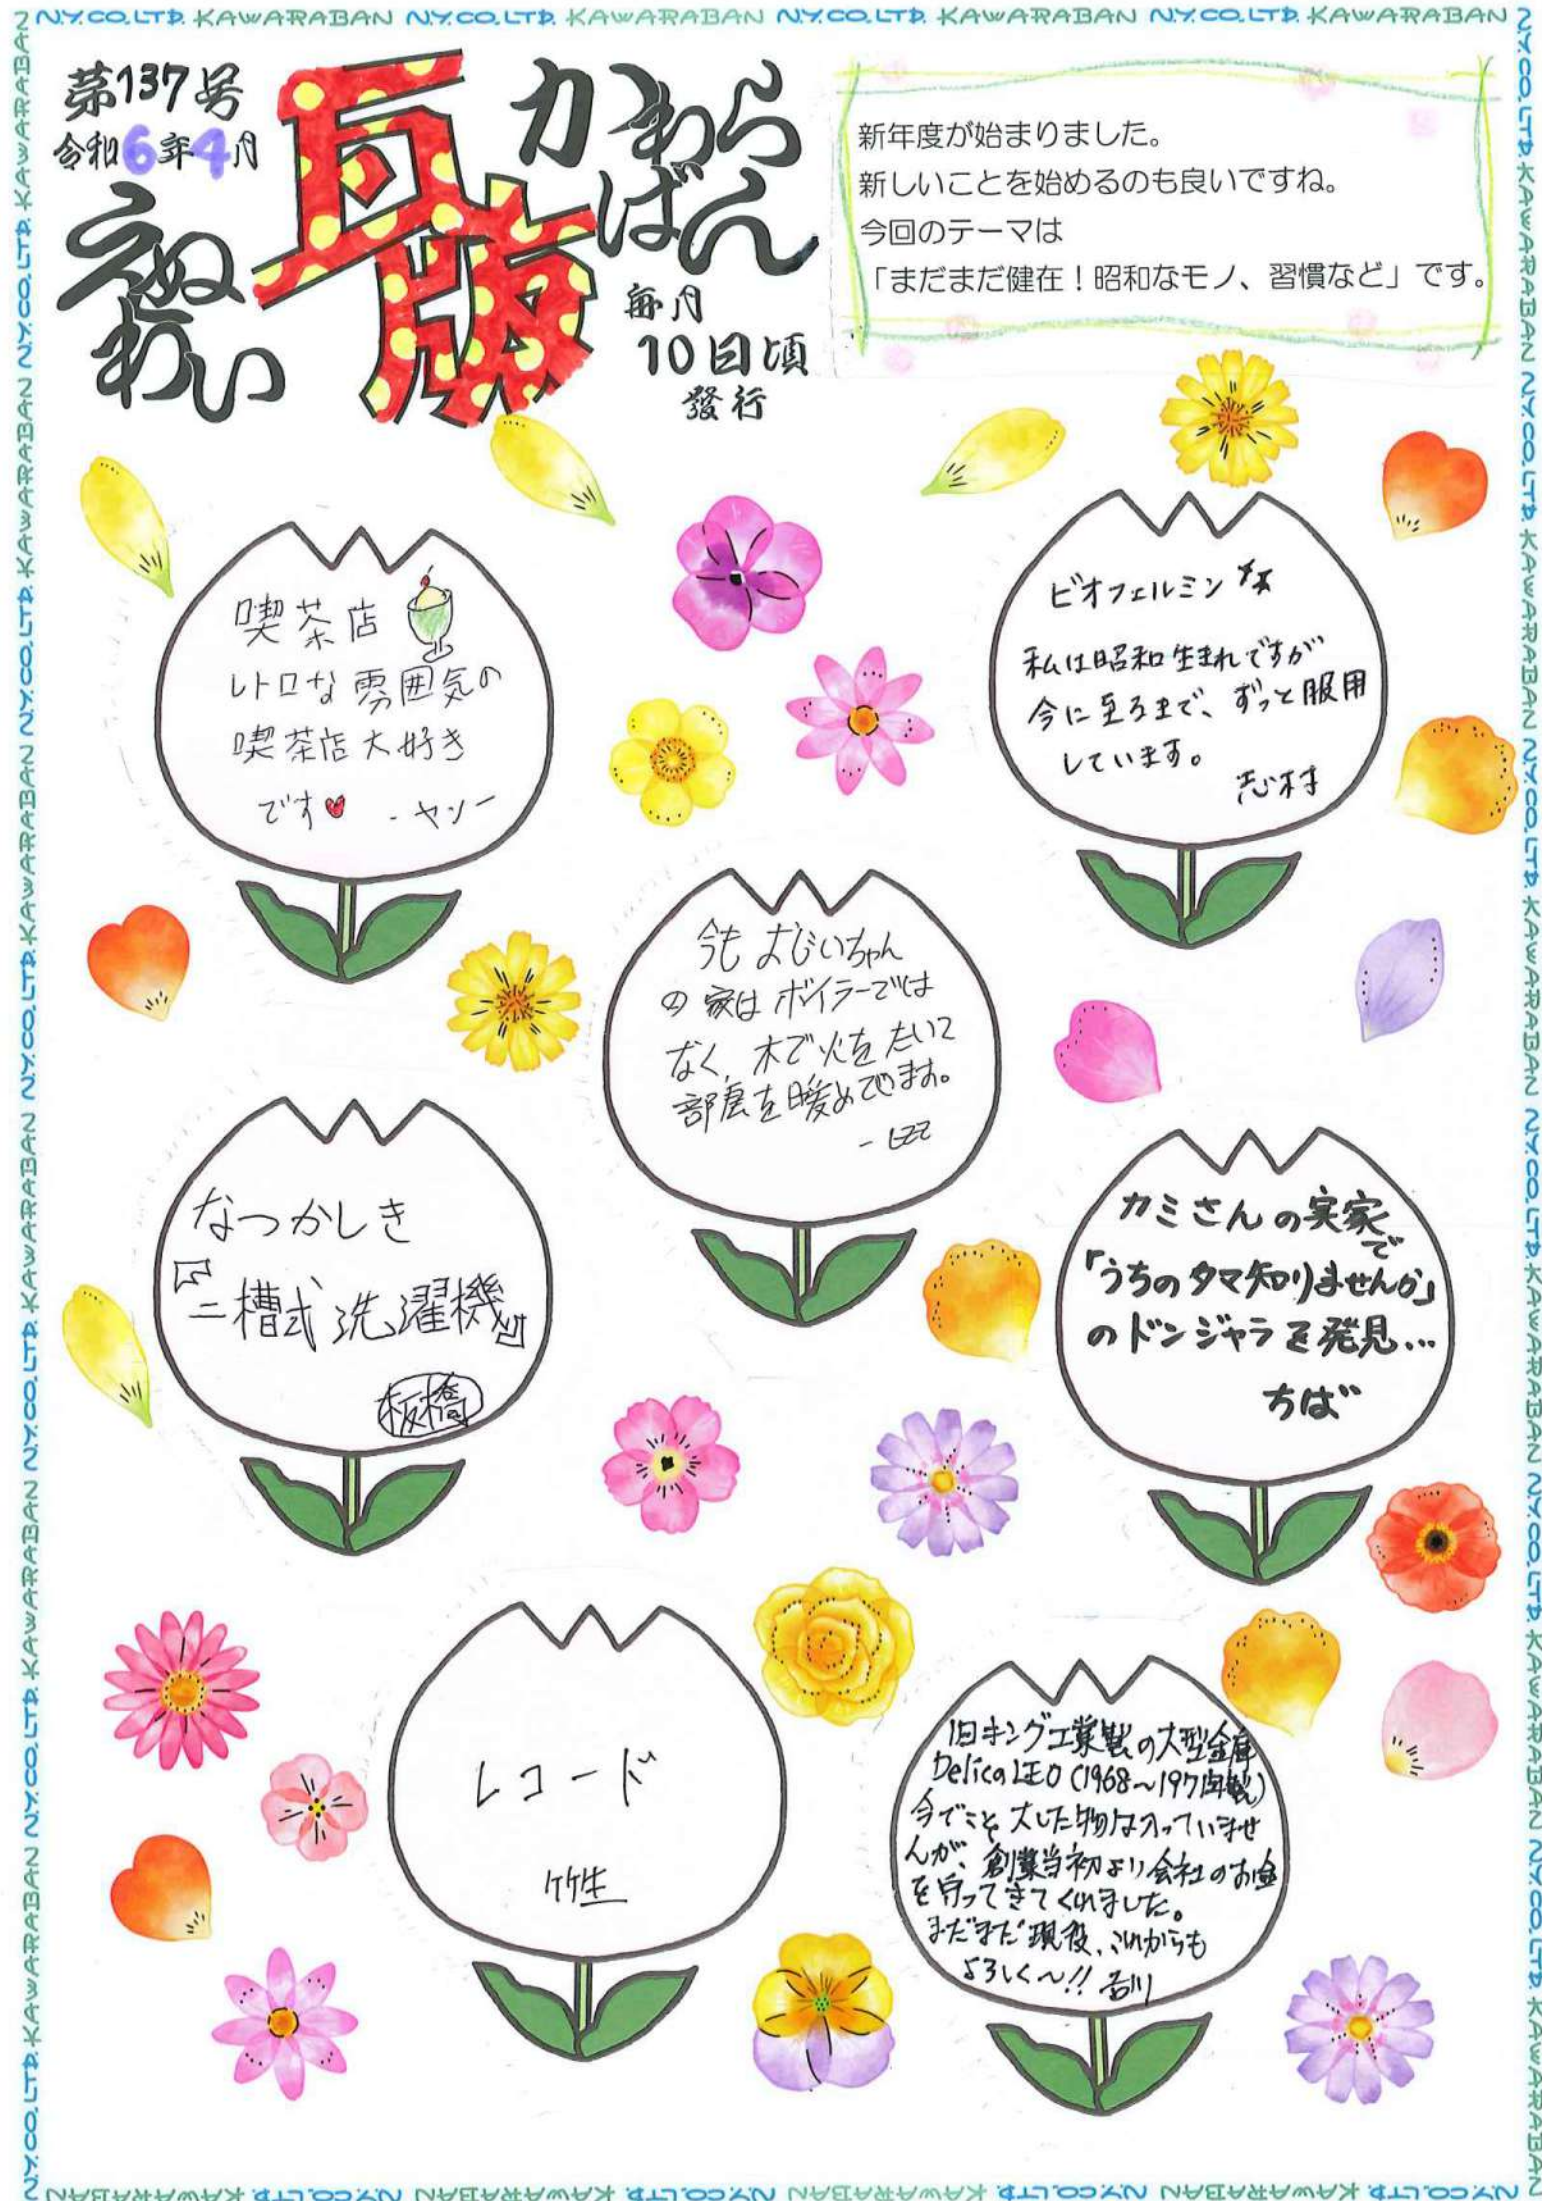 N.Y.CO.LTD. KAWARABAN N.Y.CO.LTD. KAWARABAN N.Y.CO.LTD. KAWARABAN N.Y.CO.LTD. KAWARABAN
第137号
令和6年4月
えぬわい
瓦版
かわらばん
毎月
10日頃
發行
新年度が始まりました。
新しいことを始めるのも良いですね。
今回のテーマは
「まだまだ健在！昭和なモノ、習慣など」です。
喫茶店
レトロな雰囲気の
喫茶店大好き
です♥ - ヤソー
ビオフェルミン
私は昭和生まれですが
今に至るまで、ずっと服用
しています。
志村
今もおじいちゃん
の家はボイラーでは
なく、木で火をたいて
部屋を暖めています。
なつかしき
『二槽式洗濯機』
板橋
カミさんの実家で
「うちのタマ知りませんか」
のドンジャラを発見…
ちば
レコード
竹生
旧キング工業製の大型金庫
Delica LEO (1968～1971年製)
今でこそ大した物は入っていませ
んが、創業当初より会社のお金
を守ってきてくれました。
まだまだ現役、これからも
よろしく～!! 吉川